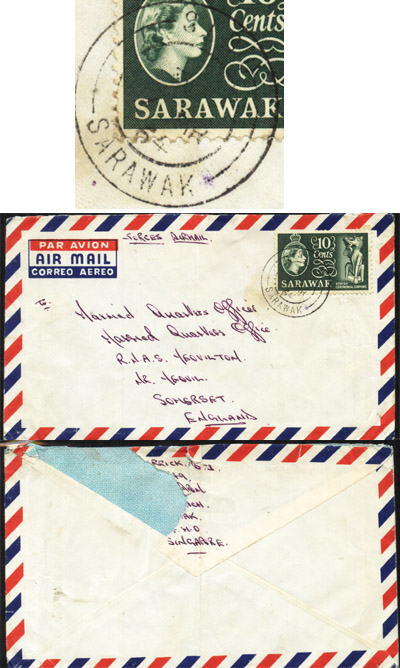 10
Cents
SARAWAK
SARAWAK
PAR AVION
AIR MAIL
CORREO AEREO
FORCES AIRMAIL
10
Cents
SARAWAK
SARAWAK
To:
Married Quarters Officer
Married Quarters Office
R.N.A.S. YEOVILTON
NR. YEOVIL.
SOMERSET
ENGLAND
SINGAPORE